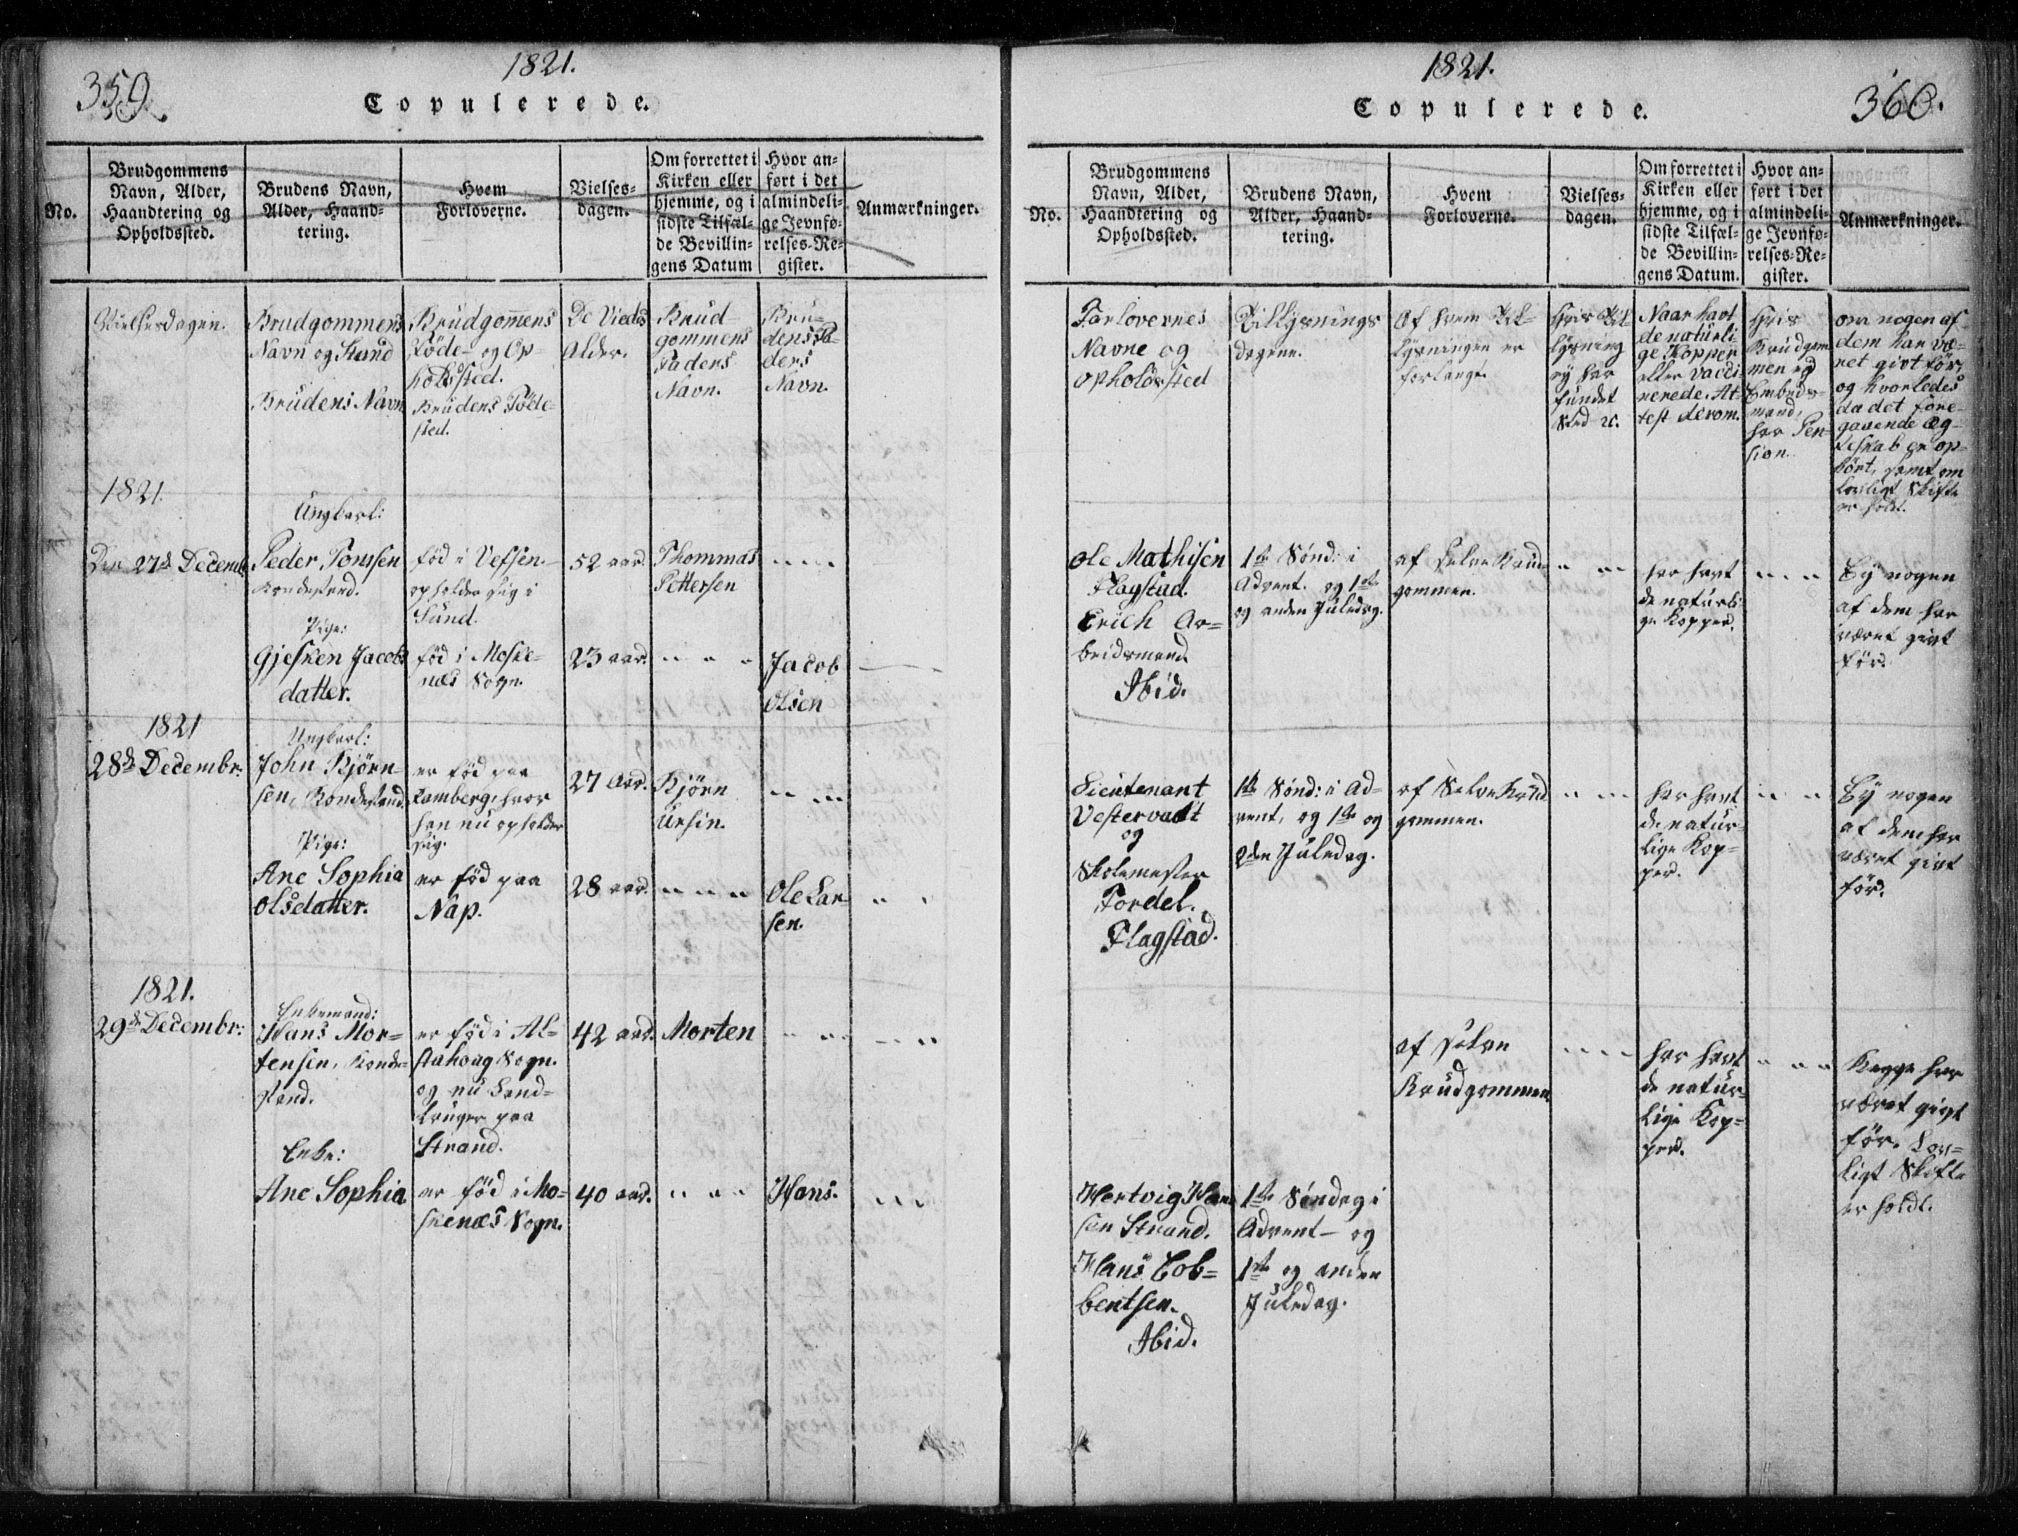 359
1821.
Copulerede.
No.
Brudgommens
Navn, Alder,
Haandtering og
Opholdssted.
Brudens Navn,
Alder, Haand-
tering.
Hvem
Forloverne.
Vielses-
dagen.
Om forrettet i
Kirken eller
hjemme, og i
sidste Tilfæl-
de Bevillin-
gens Datum
Hvor an-
ført i det
almindeli-
ge Jevnfø-
relses-Re-
gister.
Anmærkninger.
Vielsesdagen.
Brudgommens
Navn og Stand
Brudens Navn
Brudgom̅ens
Føde- og Op-
holdssted.
Brudens Føde-
sted.
De Viedes
Alder.
Brud-
gommens
Faders
Navn.
Bru-
dens Fa-
ders
Navn.
1821
Den 27de Decemb
Ungkarl:
Peder Tomssen
Bondestand.
Pige:
Gjesken Jacobs
datter.
fød i Vefsen.
opholder sig i
Sund.
fød i Moske-
næs Sogn.
52 aar.
23 aar.
Thommas
Pettersen
Jacob
Olsen
1821
28de Decembr:
Ungkarl:
John Bjørn-
sen, Bondestand.
Pige:
Ane Sophia
Olsdatter.
er fød paa
Ramberg, hvor
han nu opholder
sig.
er fød paa
Nap.
27 Aar.
28 aar.
Bjørn
Ursin.
Ole Lar-
sen.
1821.
29de Decembr:
Enkemand:
Hans Mor-
tensen, Bonde-
stand.
Enke:
Ane Sophia
er fød i Al-
stahoug Sogn.
og nu Land-
bruger paa
Strand.
er fød i Mo-
skenæs Sogn.
42 aar.
40 aar.
Morten
Hans.
1821.
360.
Copulerede.
No.
Brudgommens
Navn, Alder,
Haandtering og
Opholdssted.
Brudens Navn,
Alder, Haand-
tering.
Hvem
Forloverne.
Vielses-
dagen.
Om forrettet i
Kirken eller
hjemme, og i
sidste Tilfæl-
de Bevillin-
gens Datum.
Hvor an-
ført i det
almindeli-
ge Jevnfø-
relses-Re-
gister.
Anmærkninger.
Forlovernes
Navne og
opholdssted
Tillysnings
dagene.
Af hvem Til-
lysningen er
forlangt.
Hvis Til-
lysning
ej har
fundet
Sted ec.
Naar havt
de naturli-
ge Kopper
eller Vacci-
nerede. At-
test derom.
Hvis
Brudgom-
men er
Embeds-
mand,
har Pen-
sion.
om nogen af
dem har væ-
ret givt før,
og hvorledes
da det fore-
gaaende Æg-
teskab er op-
hørt, samt om
lovligt Skifte
er holdt.
Ole Mathisen
Flagstad.
Erich Ar-
beidsmand.
Ibid.
1ste Sønd: i
Advent. og 1ste
og anden Juledag.
af selve Brud-
gommen.
har havt
de naturli-
ge Kopper.
Ej nogen
af dem har
været givt
før.
Lieutenant
Vestervatt
og
Skolemester
Tordel.
Flagstad.
1ste Sønd: i Ad-
vent, og 1ste og
2den Juledag.
af Selve Brud
gommen.
har havt
de natur-
lige Kop-
per.
Ej nogen
af dem har
været givt
før.
Hertvig Han
sen Strand.
Hans Eob-
bentsen.
Ibid.
1ste Søndag i
Advent- og
1ste og anden
Juledag.
af selve
Brudgommen
har havt
de natur-
lige Kop-
per.
Begge har
været givt
før. Lov-
ligt Skifte
er holdt.